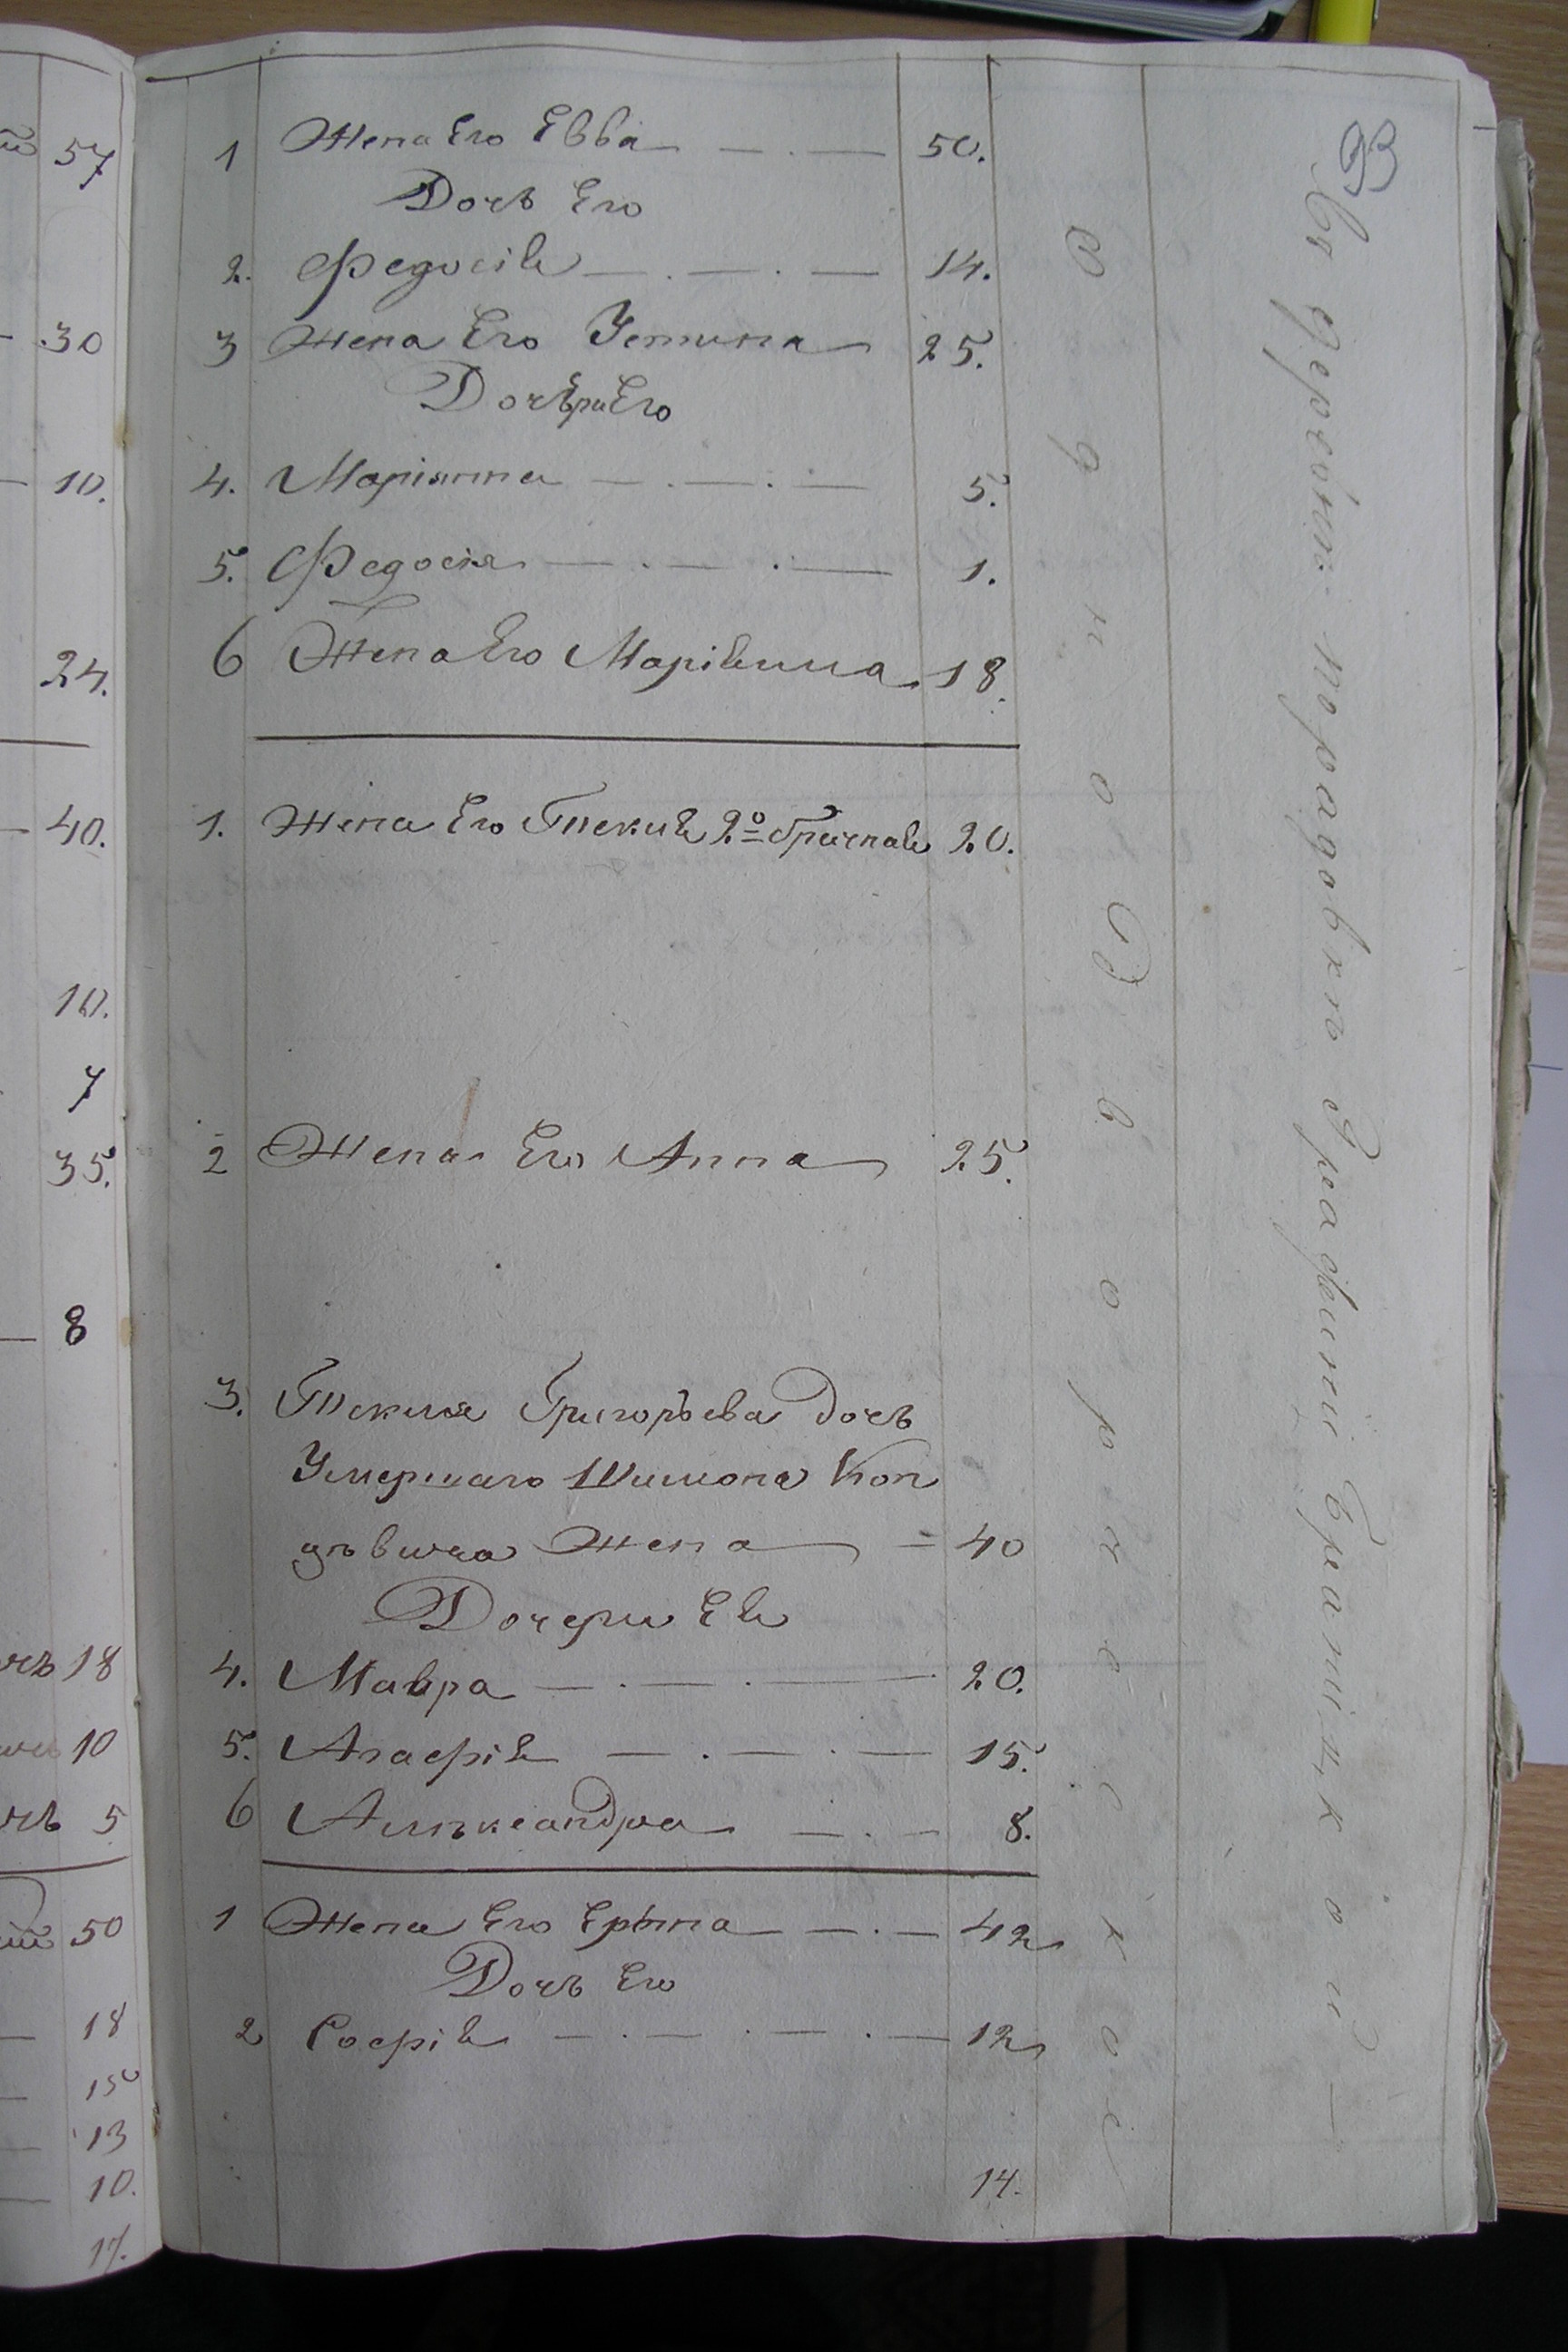 93
57
1 Жена Его Евва — . — 50.
Дочь Его
2. Федосія — . — . — 14.
30
3 Жена Его Устина 25.
Дочѣри Его
10.
4. Маріянна — . — . — 5.
5. Федосія — . — . — 1.
24.
6 Жена Его Маріянна 18.
40.
1. Жена Его Текля 2º брачная 20.
10.
7
35.
2 Жена Его Анна 25.
8
3. Текля Григорьева дочь
Умершаго Шимона Кон
дъвича Жена = 40
Дочери Ея
18
4. Мавра — . — . — 20.
10
5. Агафія — . — . — 15.
5
6 Алѣксандра — . — 8.
50
1 Жена Его Ерына — . — 42
Дочь Его
18
2 Софія — . — . — . — 12
15
13
10.
14.
17.
Однодворческой
Въ деревни